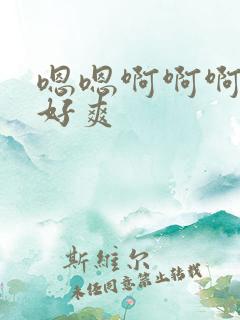 嗯嗯啊啊啊
好爽
斯維尔
未经同意禁止转载